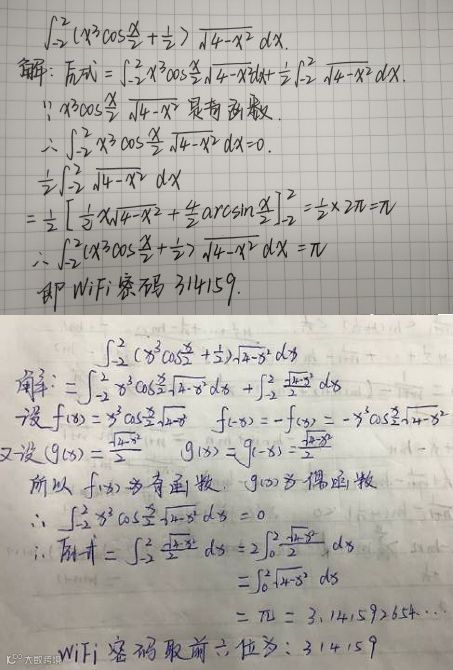 ∫₋₂² (x³cos x/2 + 1/2) √(4-x²) dx.
解: 原式 = ∫₋₂² x³cos x/2 √(4-x²)dx + 1/2 ∫₋₂² √(4-x²) dx.
∵ x³cos x/2 √(4-x²) 是奇函数.
∴ ∫₋₂² x³cos x/2 √(4-x²) dx = 0.
1/2 ∫₋₂² √(4-x²) dx
= 1/2 [1/2 x√(4-x²) + 4/2 arcsin x/2]₋₂² = 1/2 × 2π = π
∴ ∫₋₂² (x³cos x/2 + 1/2) √(4-x²) dx = π
即 WiFi 密码 314159.
∫₋₂² (x³cos x/2 + 1/2) √(4-x²) dx
解: = ∫₋₂² x³cos x/2 √(4-x²) dx + ∫₋₂² √(4-x²)/2 dx
设 f(x) = x³cos x/2 √(4-x²) f(-x) = -f(x) = -x³cos x/2 √(4-x²)
又设 g(x) = √(4-x²)/2 g(x) = g(-x) = √(4-x²)/2
所以 f(x) 为奇函数. g(x) 为偶函数
∴ ∫₋₂² x³cos x/2 √(4-x²) dx = 0
∴ 原式 = ∫₋₂² √(4-x²)/2 dx = 2∫₀² √(4-x²)/2 dx
= ∫₀² √(4-x²) dx
= π = 3.141592654...
WiFi 密码取前六位为: 314159
大数跨境